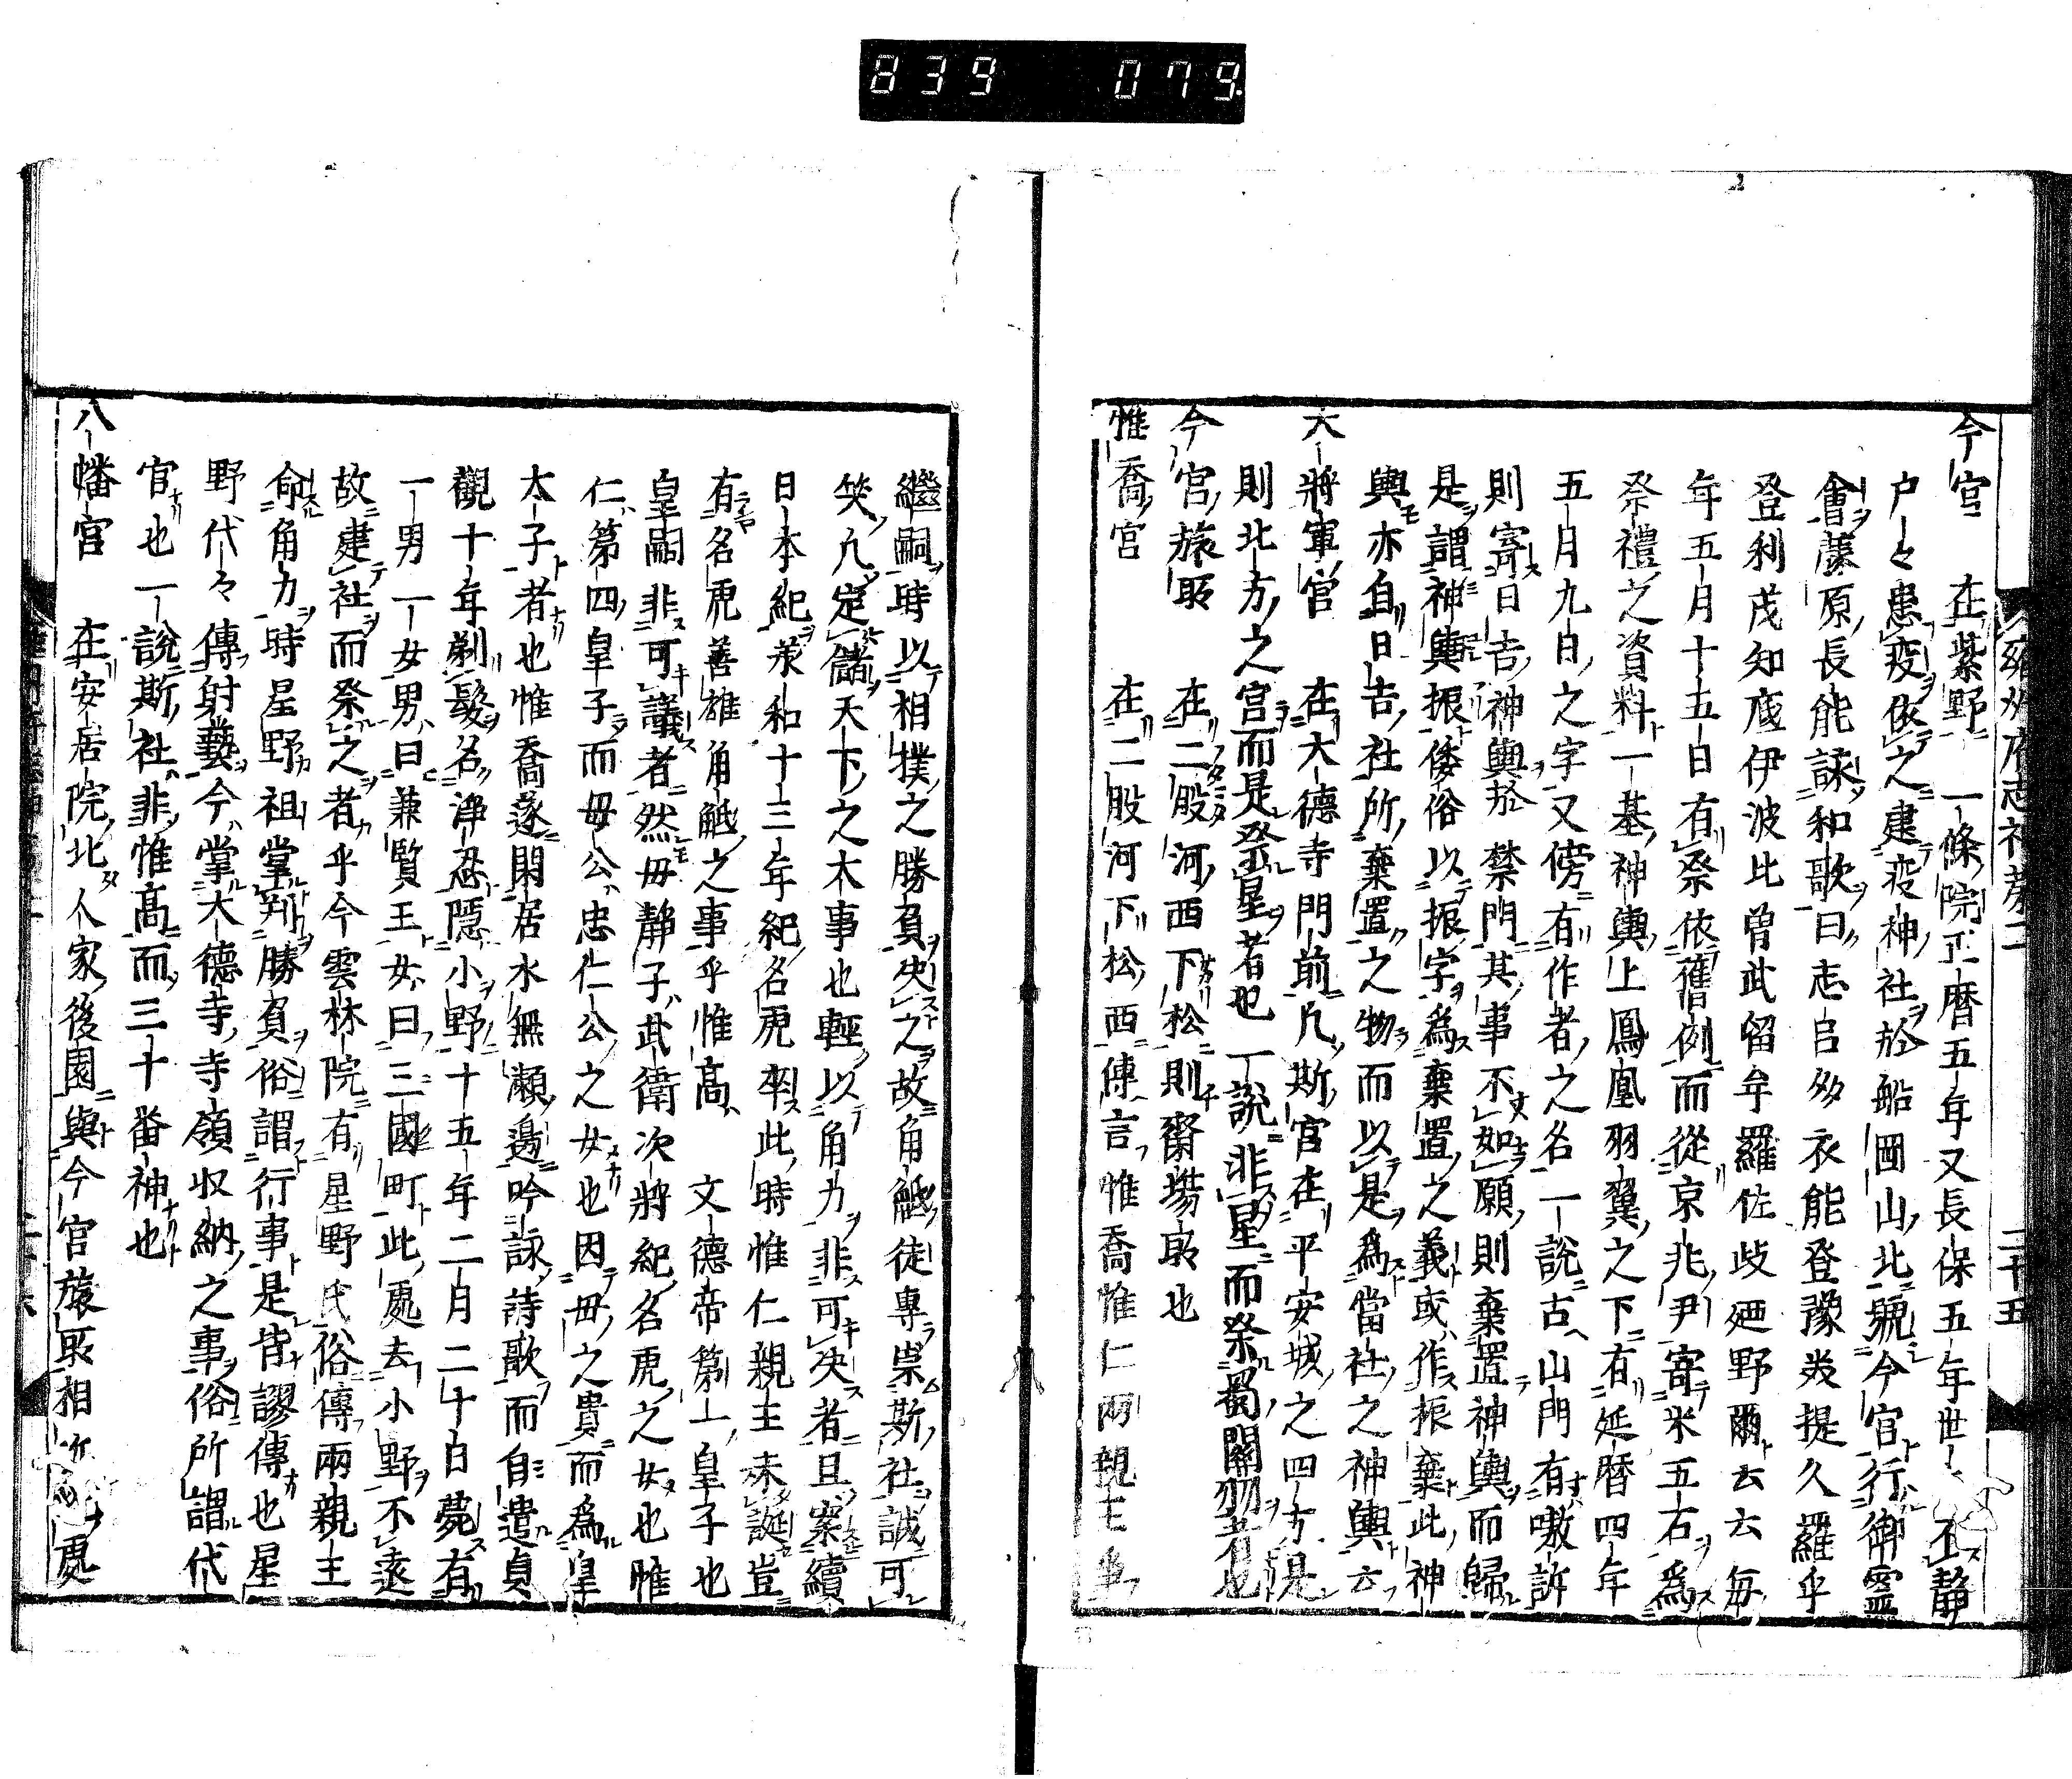 839 079
雍州府志神廟二 二十五
今宮 在紫野一條院正曆五年又長保五年世上不靜
戶々患疫依之建疫神社於船岡山北號今宮行御靈
會藤原長能詠和歌曰志呂多衣能登豫美提久羅乎
登利茂知底伊波比曾武留牟羅佐岐廼野爾云云每
年五月十五日有祭依舊例而從京兆尹寄米五石爲
祭禮之資料一基神輿上鳳凰羽翼之下有延曆四年
五月九日之字又傍有作者之名一說古山門有嗷訴
則寄日吉神輿於禁門其事不如願則棄置神輿而歸
是謂神輿振倭俗以振字爲棄置之義或作振棄此神
輿亦自日吉社所棄置之物而以是爲當社之神輿云
大將軍宮 在大德寺門前凡斯宮在平安城之四方是
則北方之宮而是祭星者也一說非星而祭蜀關羽者也
今宮旅所 在二股河西下松則齋場所也
惟喬宮 在二股河下松西傳言惟喬惟仁兩親王爭
繼嗣時以相撲之勝負決之故角觝徒專崇斯社誠可
笑凡定儲天下之大事也輕以角力非可決者且案續
日本紀承和十三年紀名虎卒此時惟仁親王未誕豈
有名虎善雄角觝之事乎惟高 文德帝第一皇子也
皇嗣非可議者然母靜子武衞次將紀名虎之女也惟
仁第四皇子而母公忠仁公之女也因母之貴而爲皇
太子者也惟喬遂閑居水無瀬邊吟詠詩歌而自遣貞
觀十年剃髮名淨忍隱小野十五年二月二十日薨有
一男一女男曰兼覽王女曰三國町此處去小野不遠
故建社而祭之者乎今雲林院有星野氏俗傳兩親王
命角力時星野祖掌判勝負俗謂行事是皆謬傳也星
野代々傳射藝今掌大德寺寺領收納之事俗所謂代
官也一說斯社非惟高而三十番神也
八幡宮 在安居院北人家後園與今宮旅所相 處